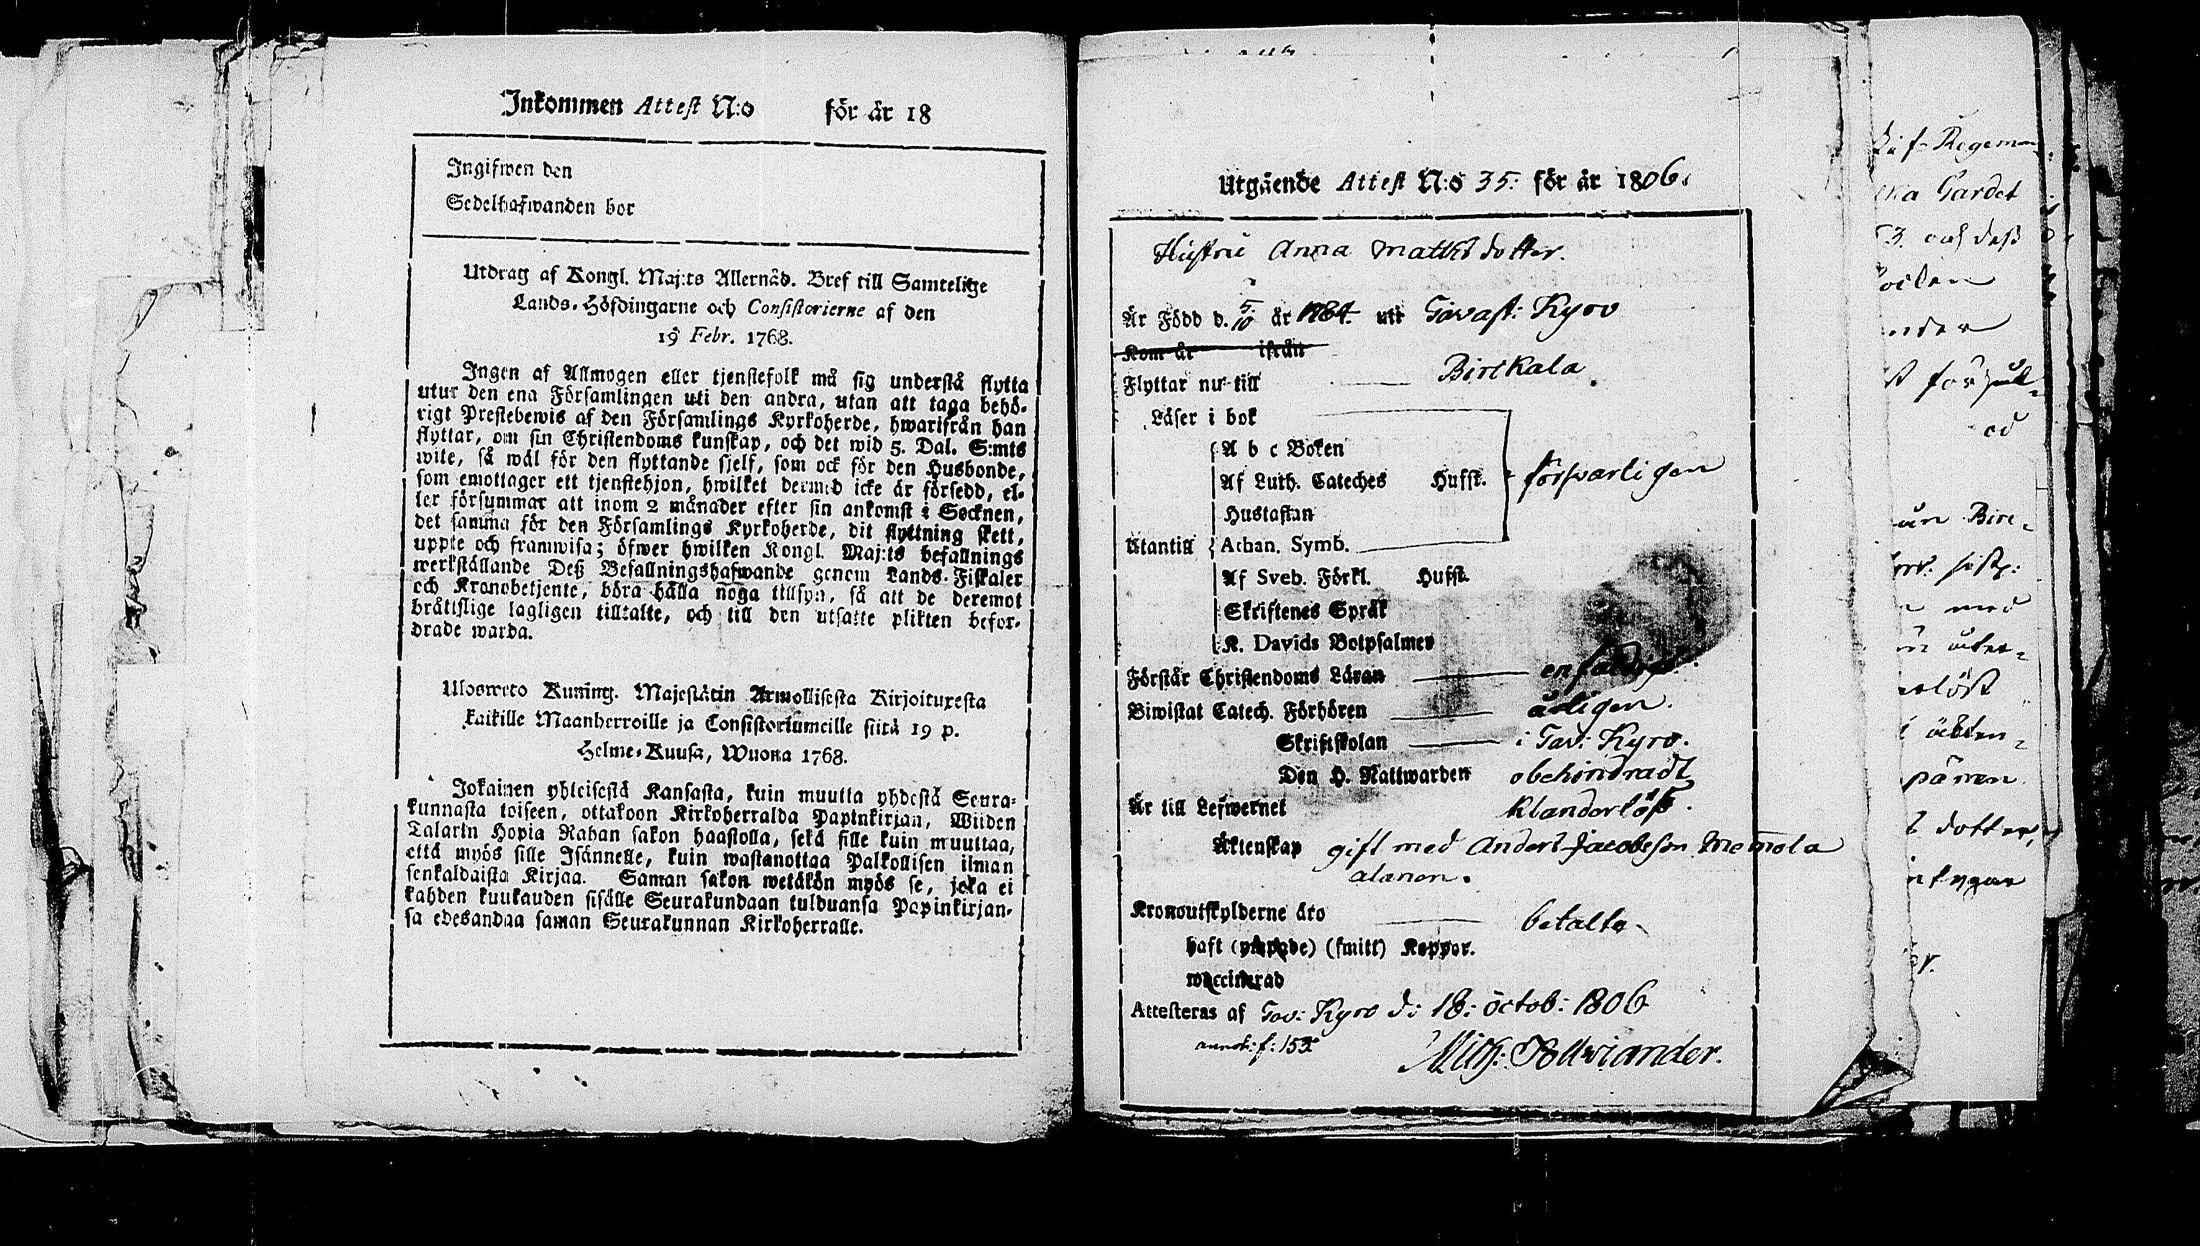 Inkommen Attest N:o för år 18
Ingifwen den
Sedelhafwanden bor
Utdrag af Kongl. Maj:ts Allernåd. Bref till Samtelige
Lands-Höfdingarne och Consistorierne af den
19 Febr. 1768.
Ingen af Allmogen eller tjenstefolk må sig understå flytta
utur den ena Församlingen uti den andra, utan att taga behö-
rigt Prestebewis af den Församlings Kyrkoherde, hwarifrån han
flyttar, om sin Christendoms kunskap, och det wid 5. Dal. S:mts
wite, så wäl för den flyttande sjelf, som ock för den Husbonde,
som emottager ett tjenstehjon, hwilket dermed icke är försedd, el-
ler försummar att inom 2 månader efter sin ankomst i Socknen,
det samma för den Församlings Kyrkoherde, dit flyttning skett,
uppte och framwisa; öfwer hwilken Kongl. Maj:ts befallnings
werkställande Deß Befallningshafwande genom Lands-Fiskaler
och Kronobetjente, böra hålla noga tillsyn, så att de deremot
bråtislige lagligen tilltalte, och till den utsatte plikten befor-
drade warda.
Ulosweto Kuning. Majestätin Armollisesta Kirjoituxesta
kaikille Maanherroille ja Consistoriumeille siitä 19 p.
Helme-Kuusa, Wuona 1768.
Jokainen yhteisestä Kansasta, kuin muutta yhdestä Seura-
kunnasta toiseen, ottakoon Kirkoherralda Papinkirjan, Wiiden
Talarin Hopia Rahan sakon haastolla, sekä sille kuin muuttaa,
että myös sille Isännelle, kuin wastanottaa Palkollisen ilman
senkaldaista Kirjaa. Saman sakon wetäkön myös se, joka ei
kahden kuukauden sisälle Seurakundaan tulduansa Papinkirjan-
sa edesandaa saman Seurakunnan Kirkoherralle.
Utgående Attest N:o 35: för år 1806.
Hustru Anna Matthsdotter.
Är Född d. 5/10 år 1784. uti Tavast: Kyro
Kom år ifrån
Flyttar nu till Birkkala.
Läser i bok
A b c Boken
Af Luth. Cateches Hufst. försvarligen
Hustaflan
Utantill Athan. Symb.
Af Sveb. Förkl. Hufst.
Skriftenes Språk
K. Davids Botpsalmer
Förstår Christendoms Läran enfaldigt.
Biwistat Catech. Förhören årligen.
Skriftskolan i Tav: Kyro.
Den H. Nattwarden obehindradt
Är till Lefwernet klanderlöß.
Äktenskap gift med Anders Jacobsson Memola
alanen.
Kronoutskylderne äro betalte.
haft (ympade) (smitt) Koppor.
waccinerad
Attesteras af Tav: Kyro d: 18: octob: 1806
annot: f: 155.
Mich: Pollviander.
Gardet
3. och deß
dotter